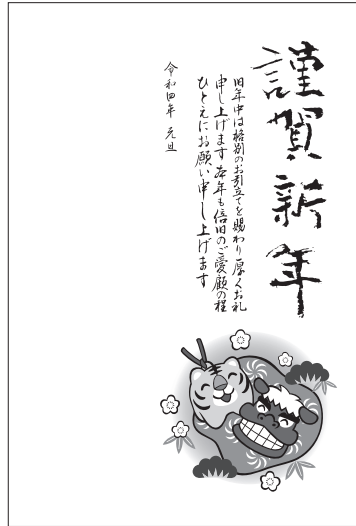 謹賀新年
旧年中は格別のお引立てを賜わり厚くお礼
申し上げます本年も倍旧のご愛顧の程
ひとえにお願い申し上げます
令和四年 元旦